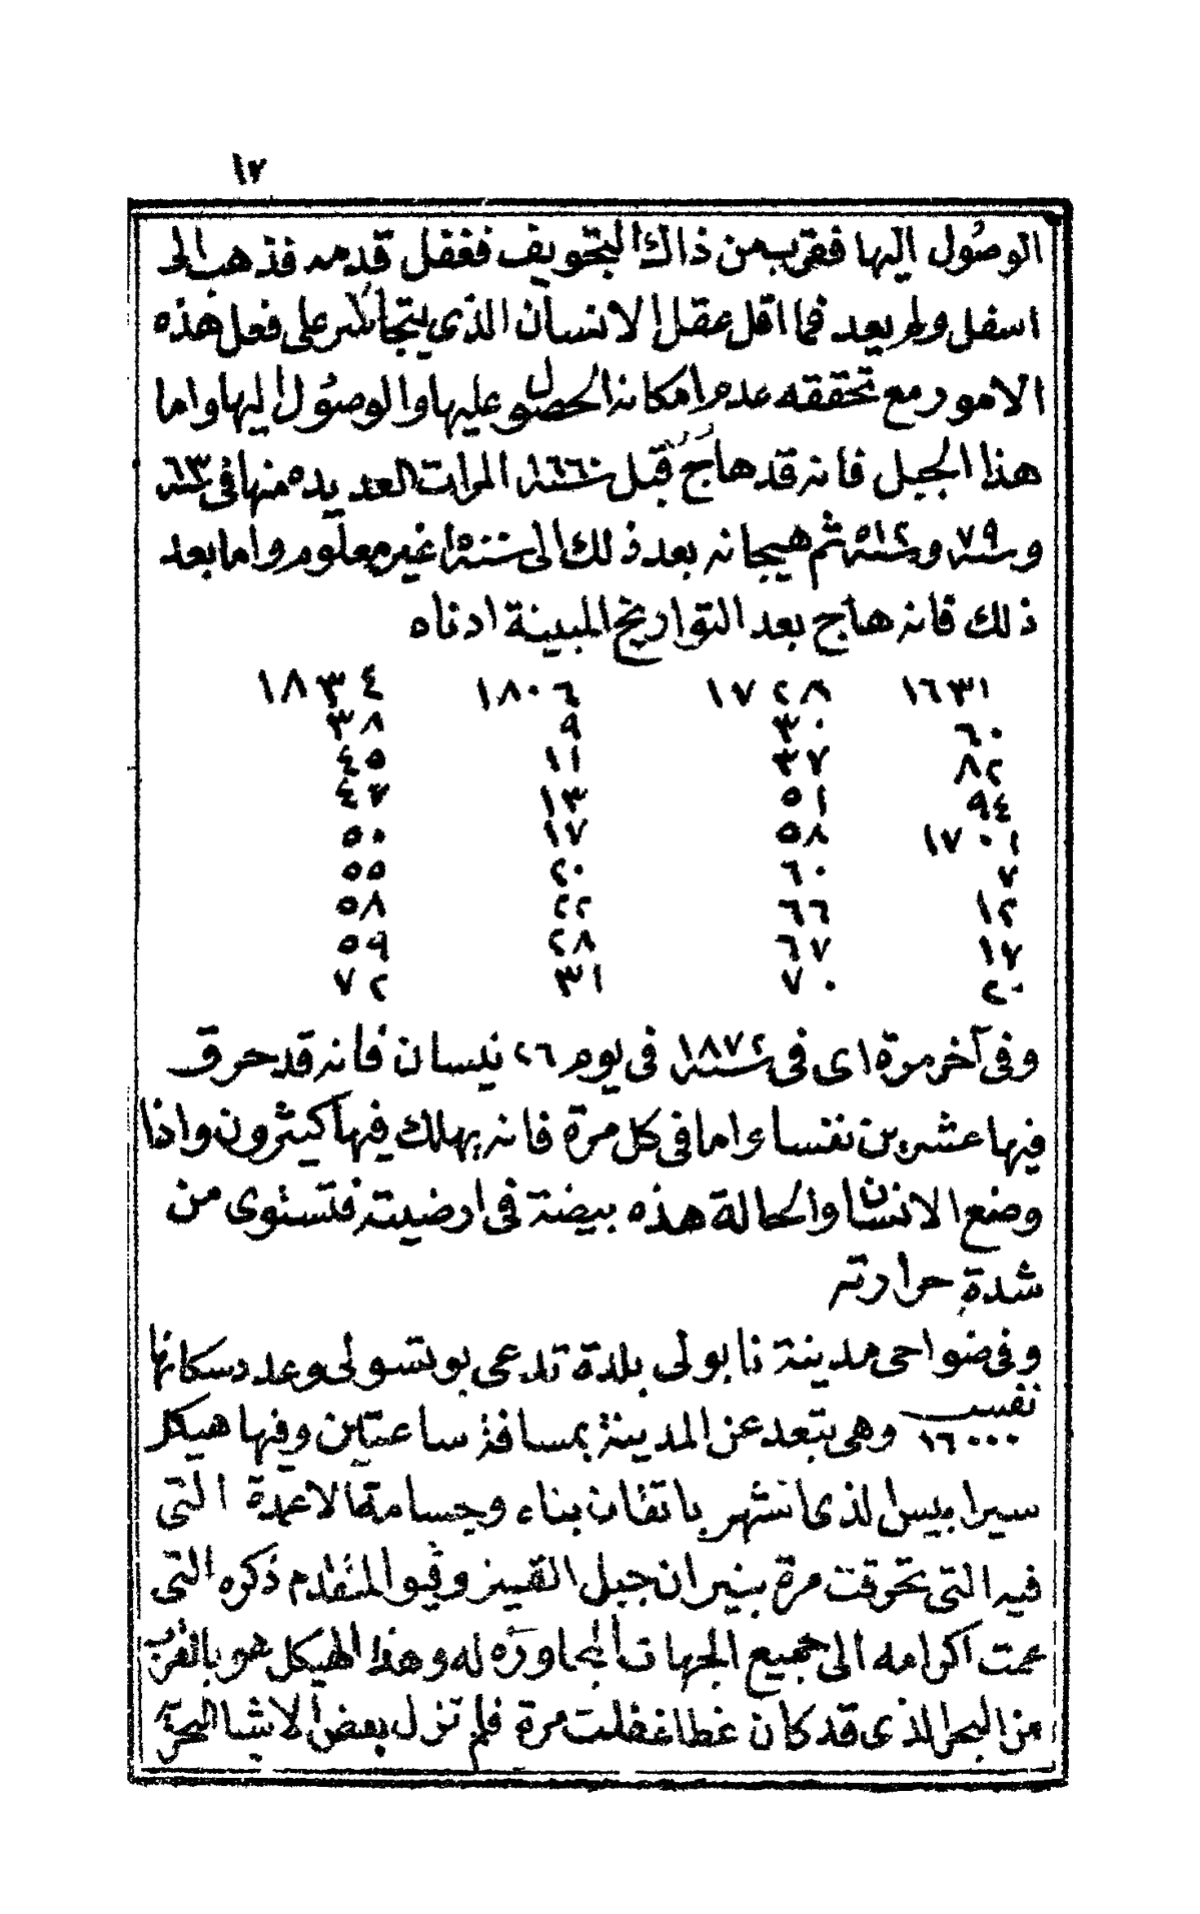 ١٧
الوصول اليها فقرب من ذاك التجويف فغفل قدمه فذهب الى
اسفل ولم يعد فما اقل عقل الانسان الذي يتجاسر على فعل هذه
الامور مع تحققه عدم امكانه الحصول عليها والوصول اليها واما
هذا الجبل فانه قد هاج قبل سنة ١٦٦٠ المرات العديده منها في سنة ٦٣
وسنة ٧٩ وسنة ٥١٢ ثم هيجانه بعد ذلك الى سنة غير معلوم واما بعد
ذلك فانه هاج بعد التواريخ المبينة ادناه
١٦٣١ ١٧٢٨ ١٨٠٦ ١٨٣٤
٦٠ ٣٠ ٩ ٣٨
٨٢ ٣٧ ١١ ٤٥
٩٤ ٥١ ١٣ ٤٧
١٧٠١ ٥٨ ١٧ ٥٠
٧ ٦٠ ٢٠ ٥٥
١٢ ٦٦ ٢٢ ٥٨
١٧ ٦٧ ٢٨ ٥٩
٢٠ ٧٠ ٣١ ٧٢
وفي آخر مرة اي في سنة ١٨٧٢ في يوم ٢٦ نيسان فانه قد حرق
فيها عشرين نفسا واما في كل مرة فانه يهلك فيها كثيرون واذا
وضع الانسان والحالة هذه بيضة في ارضيته فتستوى من
شدة حرارته
وفي ضواحي مدينة نابولي بلدة تدعى بوتسولي وعدد سكانها
١٦٠٠٠ نفس وهي تبعد عن المدينة بمسافة ساعتين وفيها هيكل
سيرابيس الذي اشتهر باتقان بناء وجسامة الاعمدة التي
فيه التي تحرقت مرة بنيران جبل الفيزوفيو المتقدم ذكره التي
عمت اكرامه الى جميع الجهات المجاورة له وهذا الهيكل هو بالقرب
من البحر الذي قد كان غطا غفلت مرة فلم تزل بعض الاشيا البحرية